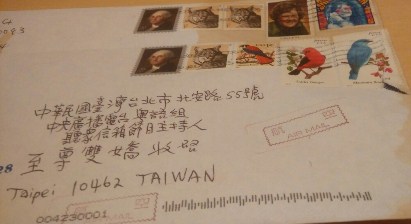 中華民國臺灣台北市北安路55號
中央廣播電台 粵語組
聽眾信箱節目主持人
至 雙嬌 收
Taipei 10462 TAIWAN
AIR MAIL
004230001